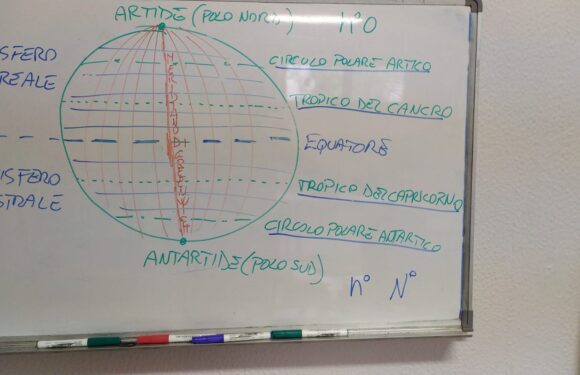 ARTIDE (POLO NORD)
n°0
CIRCOLO POLARE ARTICO
SFERO
REALE
TROPICO DEL CANCRO
EQUATORE
ISFERO
STRALE
TROPICO DEL CAPRICORNO
CIRCOLO POLARE ANTARTICO
ANTARTIDE (POLO SUD)
n° N°